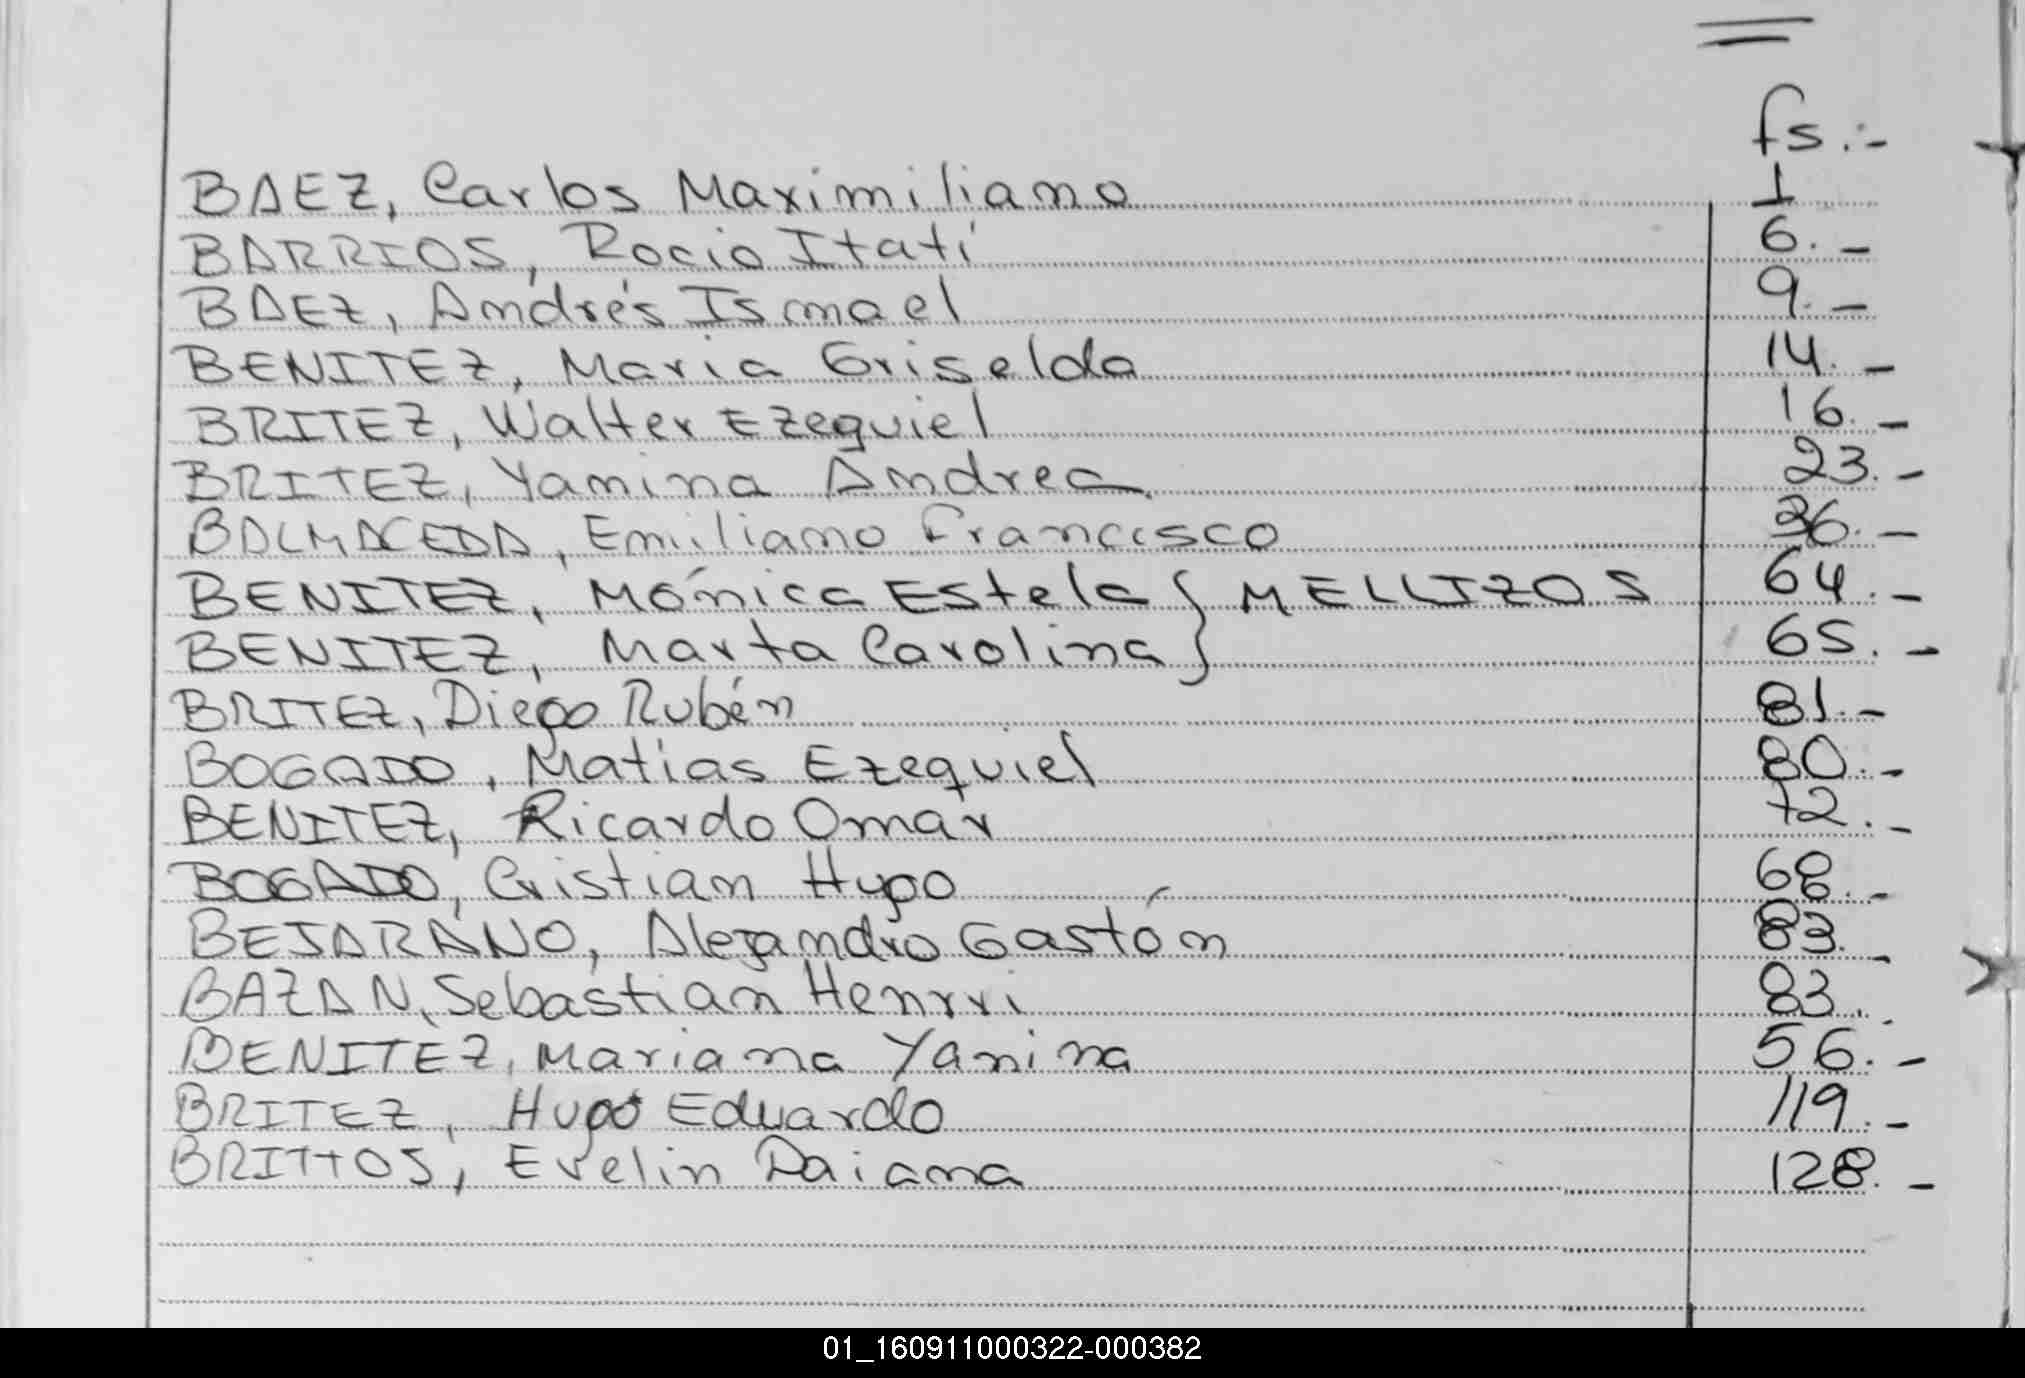 fs.:-
BAEZ, Carlos Maximiliano 1
BARRIOS, Rocio Itatí 6.-
BAEZ, Andrés Ismael 9.-
BENITEZ, Maria Griselda 14.-
BRITEZ, Walter Ezequiel 16.-
BRITEZ, Yanina Andrea. 23.-
BALMACEDA, Emiliano Francisco 36.-
BENITEZ, Mónica Estela } MELLIZOS 64.-
BENITEZ, Marta Carolina } 65.-
BRITEZ, Diego Rubén 81.-
BOGADO, Matias Ezequiel 80.-
BENITEZ, Ricardo Omar 72.-
BOGADO, Cristian Hugo 68.-
BEJARANO, Alejandro Gastón 83.-
BAZAN, Sebastian Henrri 83..
BENITEZ, Mariana Yanina 56.-
BRITEZ, Hugo Eduardo 119.-
BRITTOS, Evelin Daiana 128.-
01_160911000322-000382